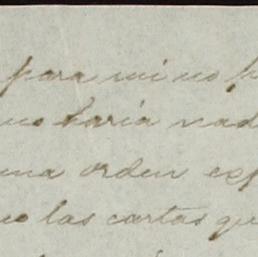 para mi no p
no haría nad
una orden esp
no las cartas qu